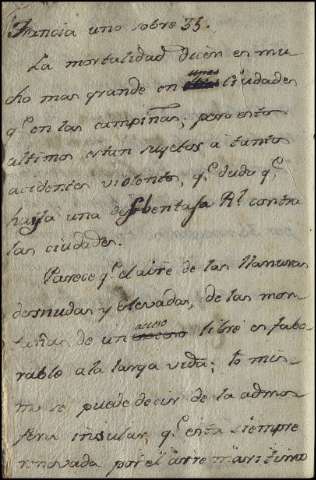 Francia uno sobre 35.
La mortalidad dicen es mu
cho mas grande en unas Ciudades
q.e en las campiñas, pero estos
altimos estan sujetos a tantos
acidentes violentos, q.e dudo q.e
haya una desbentaja Rl contra
las ciudades.
Parece q.e el aire de las llanuras
desnudas y elevadas, de las mon
tañas de un acceso libre es fabo
rable a la larga vida; lo mis
mo se puede decir de la admos
fera insular, q.e esta siempre
renovada por el aire maritimo